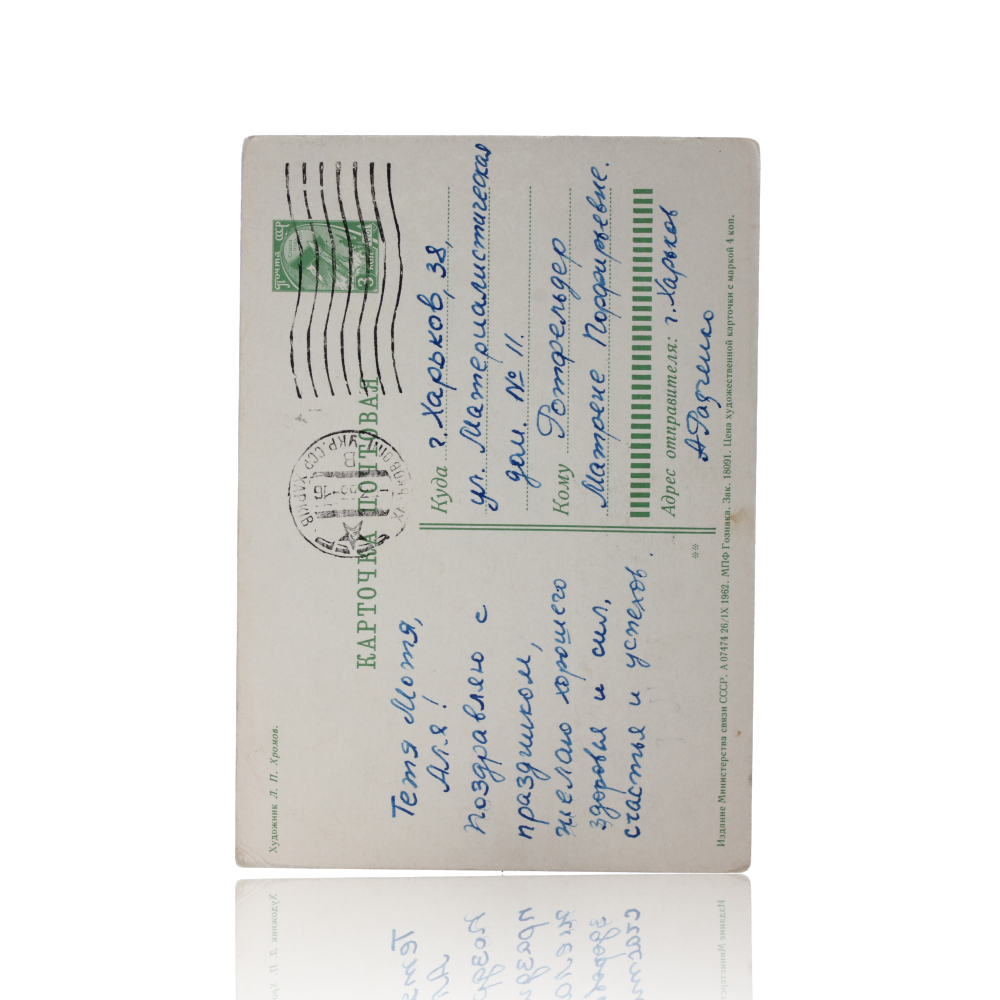 Художник Л. П. Хромов.
Почта СССР
3 коп
КАРТОЧКА ПОЧТОВАЯ
УКР. ССР ХАРКІВ
Тетя Мотя,
Аля!
Поздравляю с
праздником,
желаю хорошего
здоровья и сил,
счастья и успехов.
Куда г. Харьков, 38,
ул. Материалистическая
дом. № 11.
Кому Ротфельдер
Матрене Порфирьевне.
Адрес отправителя: г. Харьков
А Радченко
**
Издание Министерства связи СССР. А 07474 26/IX 1962. МПФ Гознака. Зак. 18091. Цена художественной карточки с маркой 4 коп.